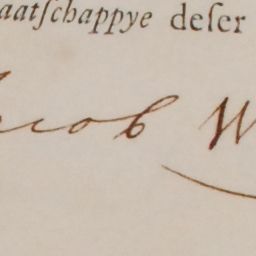 aatſchappye deſer
acob W